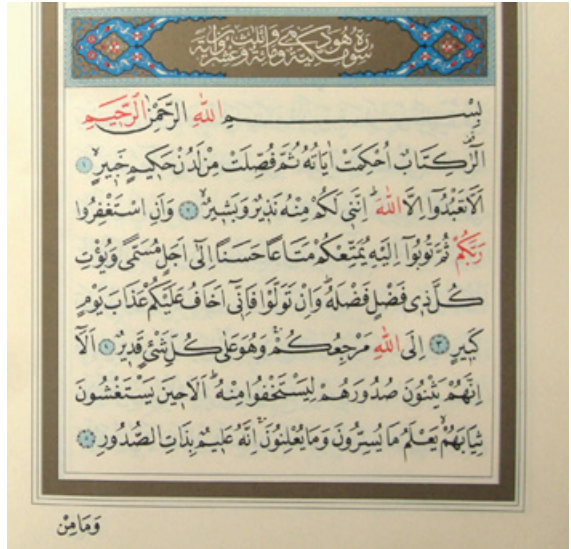 سورة هود مكية وهي مائة وثلث وعشرون اية
بِسْمِ اللّٰهِ الرَّحْمٰنِ الرَّحِيمِ
الٓرٰ كِتَابٌ اُحْكِمَتْ اٰيَاتُهُ ثُمَّ فُصِّلَتْ مِنْ لَدُنْ حَكِيمٍ خَبِيرٍۙ ١
اَلَّا تَعْبُدُٓوا اِلَّا اللّٰهَۜ اِنَّنِى لَكُمْ مِنْهُ نَذِيرٌ وَبَشِيرٌۙ ٢ وَاَنِ اسْتَغْفِرُوا
رَبَّكُمْ ثُمَّ تُوبُٓوا اِلَيْهِ يُمَتِّعْكُمْ مَتَاعًا حَسَنًا اِلٰٓى اَجَلٍ مُسَمًّى وَيُؤْتِ
كُلَّ ذِى فَضْلٍ فَضْلَهُۜ وَاِنْ تَوَلَّوْا فَاِنِّٓى اَخَافُ عَلَيْكُمْ عَذَابَ يَوْمٍ
كَبِيرٍ ٣ اِلَى اللّٰهِ مَرْجِعُكُمْۚ وَهُوَ عَلٰى كُلِّ شَىْءٍ قَدِيرٌ ٤ اَلَٓا
اِنَّهُمْ يَثْنُونَ صُدُورَهُمْ لِيَسْتَخْفُوا مِنْهُۜ اَلَا حِينَ يَسْتَغْشُونَ
ثِيَابَهُمْۙ يَعْلَمُ مَا يُسِرُّونَ وَمَا يُعْلِنُونَۚ اِنَّهُ عَلِيمٌ بِذَاتِ الصُّدُورِ ٥
وَمَا مِنْ